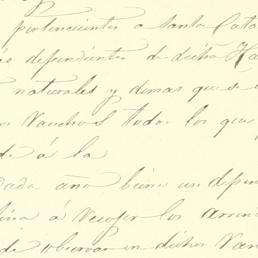 pertenecientes a Santa Cata
as dependientes de dicha Ha
naturales y demas que se
os Ranchos todos los que
de á la
Cada año biene un depen
lina á recojer los arren
de observar en dichos Ran